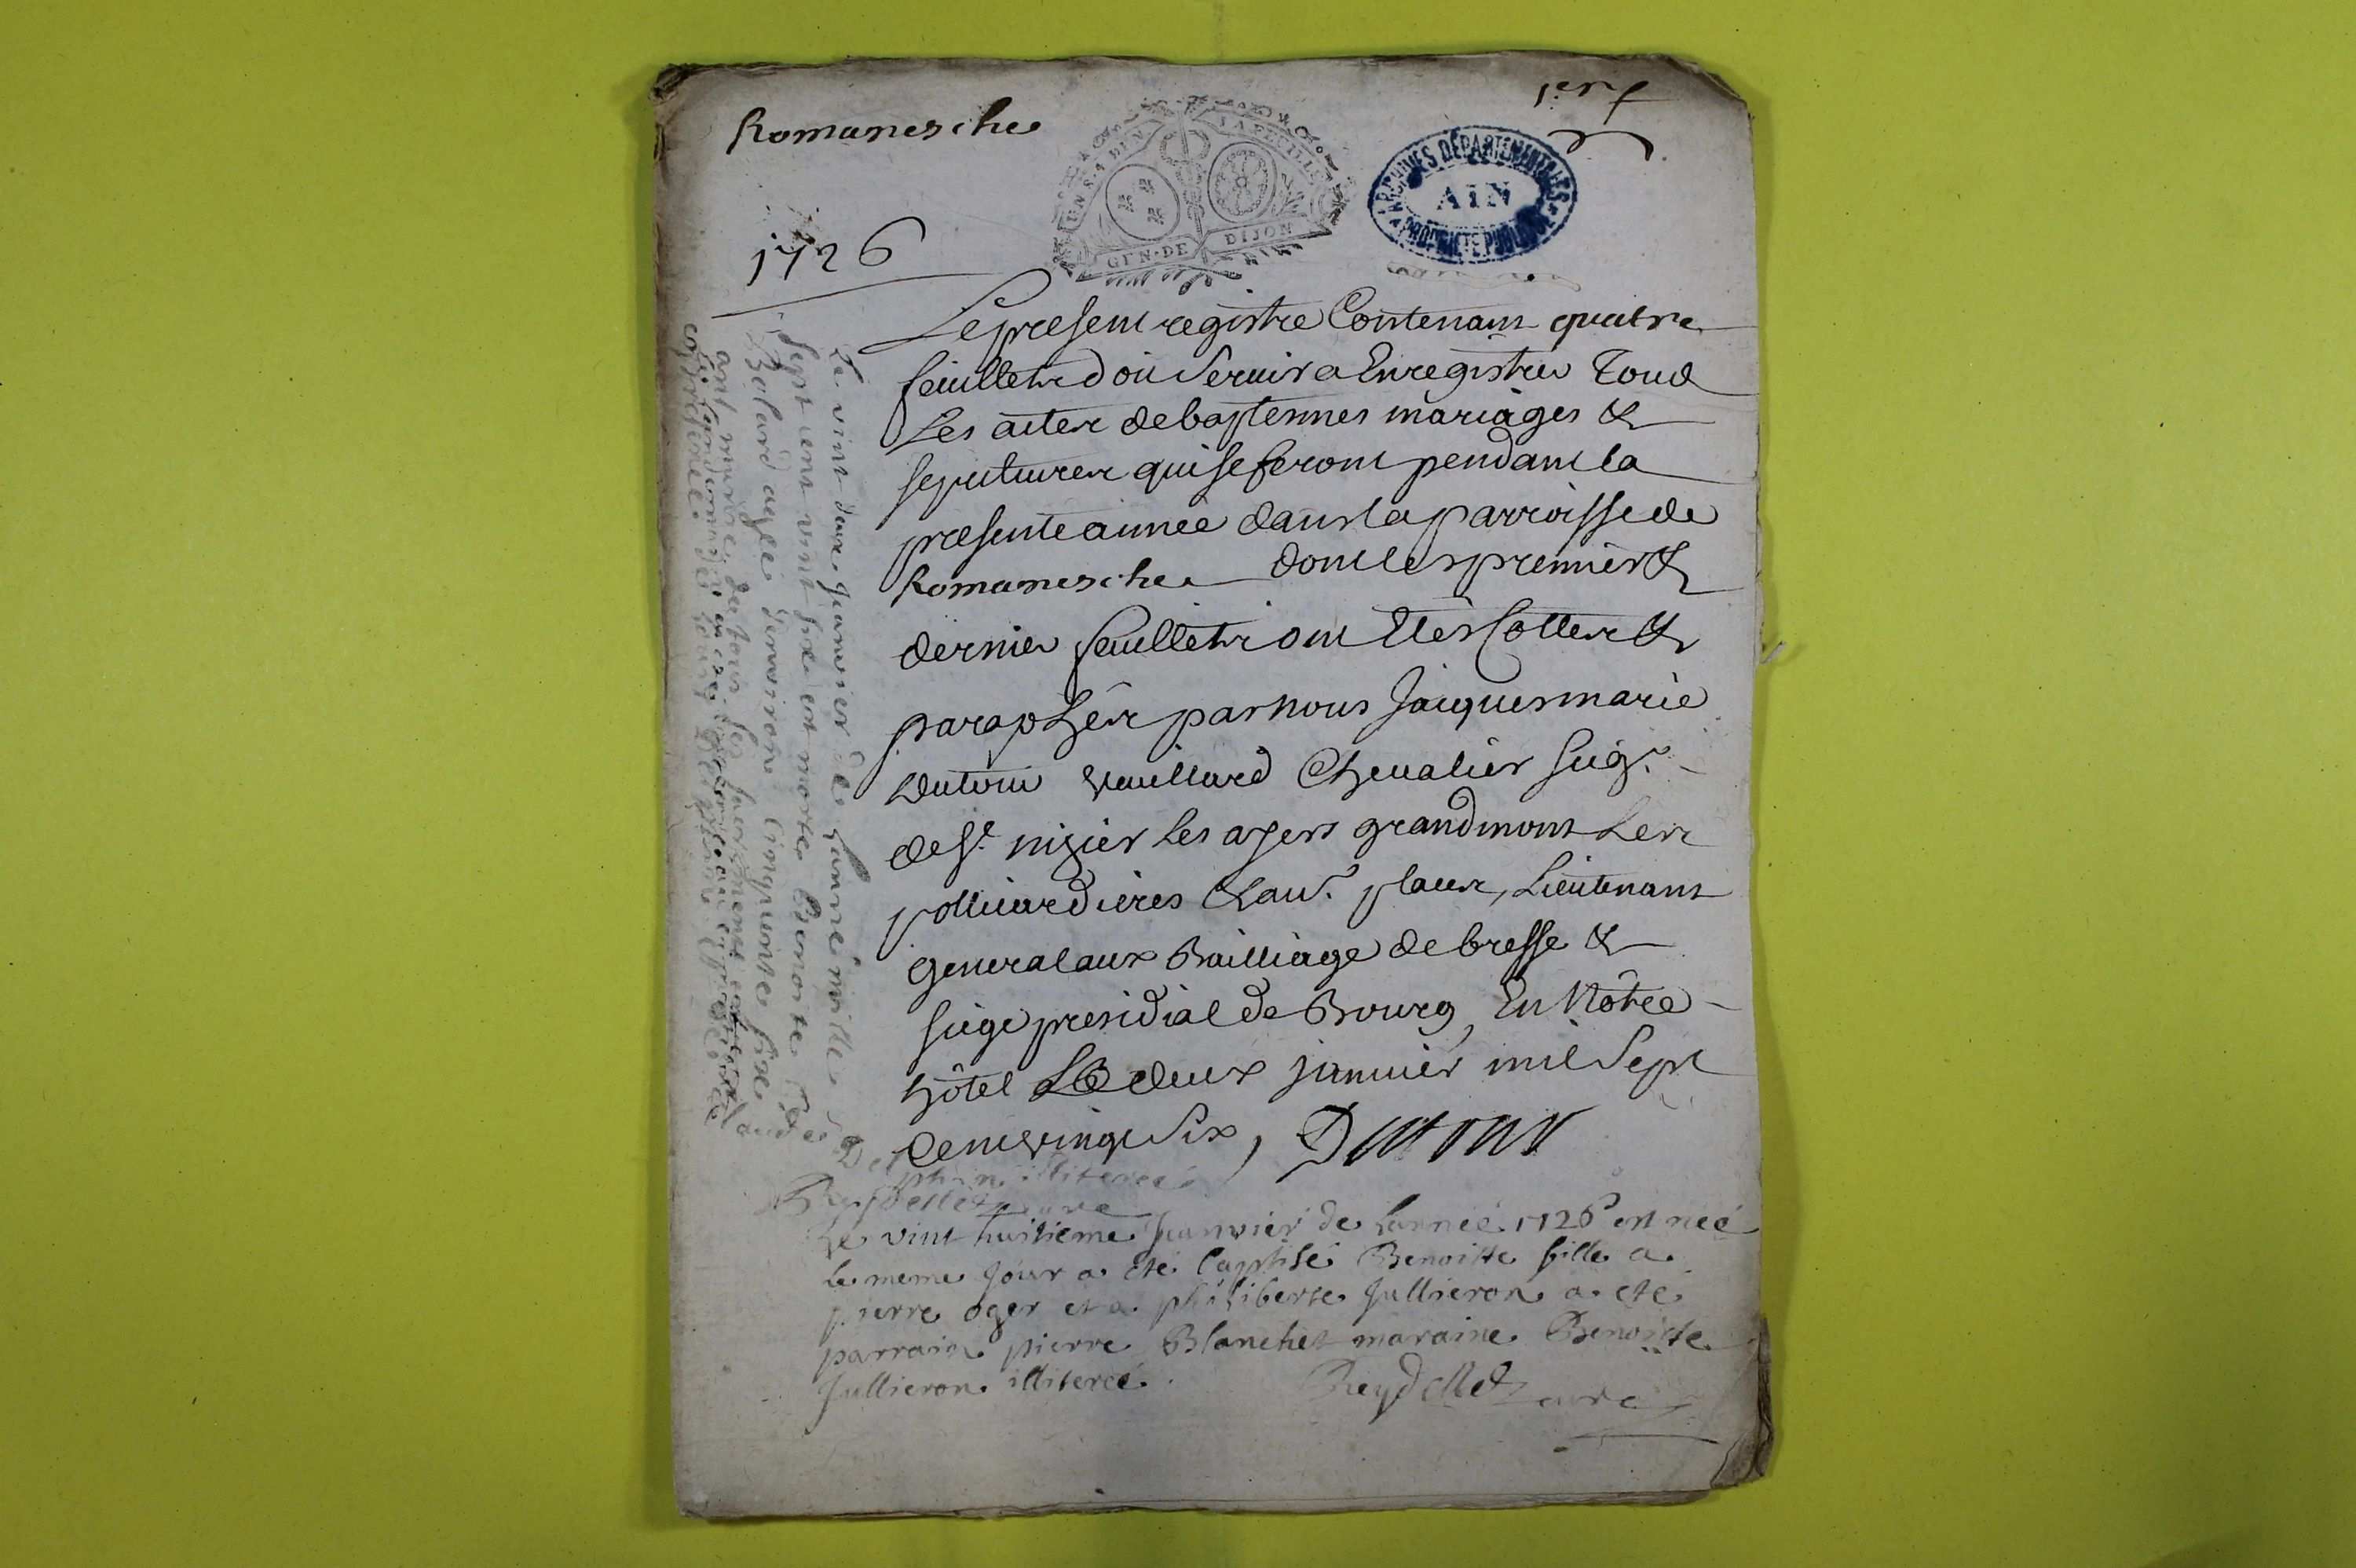 Romanesche
1er f
1726
LA FEUILLE
GEN·DE DIJON
ARCHIVES DEPARTEMENTALES
AIN
PROPRIETE PUBLIQUE
Le present registre Contenant quatre
feuillets doit Servir a Enregistrer Tous
Les actes de baptemes mariages &
sepultures qui se feront pendant la
presente année dans la parroisse de
Romanesche dont les premier &
dernier feuillets ont Etés Cottés &
paraphés par nous Jacques marie
Dutour Vuillard Chevalier seigr
de St nizier Les ayers grandmont Les
polliardieres & au. places, Lieutenant
general aux Bailliage de bresse &
siege presidial de Bourg, En Nôtre
hôtel Le deux janvier mil Sept
Cent vingt Six, Dutour
Le vint deux Jeanvier de Lanné mille
sept cent vint six est morte Benoite
Balard agée denviron Cinquante six
ant munie de tous ses sacrements
phin illiteree
Reydellet cure
Le vint huitieme Jeanvier de Lannée 1726 est neé
Le meme Jour a été baptisé Benoitte fille a
pierre oger et a philiberte Jullieron a eté
parrain pierre Blanchet maraine Benoitte
Jullieron illiteré. Reydellet cure